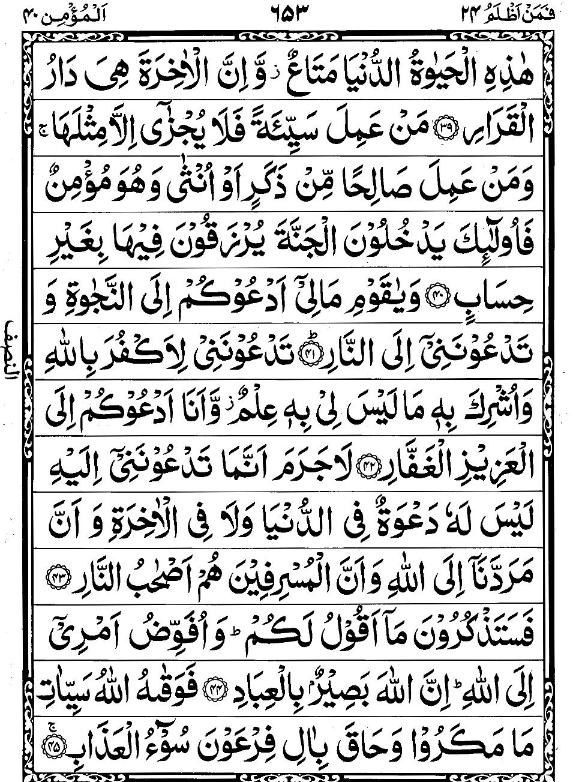 فَمَنْ اَظْلَمُ ٢٤ ٦٥٣ اَلْمُؤْمِن ٤٠
هٰذِهِ الْحَيٰوةُ الدُّنْيَا مَتَاعٌ ۡ وَّ اِنَّ الْاٰخِرَةَ هِىَ دَارُ
الْقَرَارِ ﴿٣٩﴾ مَنْ عَمِلَ سَيِّئَةً فَلَا يُجْزٰٓى اِلَّا مِثْلَهَا ۚ
وَمَنْ عَمِلَ صَالِحًا مِّنْ ذَكَرٍ اَوْ اُنْثٰى وَهُوَ مُؤْمِنٌ
فَاُولٰٓئِكَ يَدْخُلُوْنَ الْجَنَّةَ يُرْزَقُوْنَ فِيْهَا بِغَيْرِ
حِسَابٍ ﴿٤٠﴾ وَيٰقَوْمِ مَالِىْٓ اَدْعُوْكُمْ اِلَى النَّجٰوةِ وَ
تَدْعُوْنَنِىْٓ اِلَى النَّارِ ؕ﴿٤١﴾ تَدْعُوْنَنِىْ لِاَكْفُرَ بِاللّٰهِ
النصف
وَاُشْرِكَ بِهٖ مَا لَيْسَ لِىْ بِهٖ عِلْمٌ ۡ وَّاَنَا اَدْعُوْكُمْ اِلَى
الْعَزِيْزِ الْغَفَّارِ ﴿٤٢﴾ لَاجَرَمَ اَنَّمَا تَدْعُوْنَنِىْٓ اِلَيْهِ
لَيْسَ لَهٗ دَعْوَةٌ فِى الدُّنْيَا وَلَا فِى الْاٰخِرَةِ وَ اَنَّ
مَرَدَّنَاۤ اِلَى اللّٰهِ وَاَنَّ الْمُسْرِفِيْنَ هُمْ اَصْحٰبُ النَّارِ ﴿٤٣﴾
فَسَتَذْكُرُوْنَ مَاۤ اَقُوْلُ لَكُمْ ؕ وَاُفَوِّضُ اَمْرِىْٓ
اِلَى اللّٰهِ ؕ اِنَّ اللّٰهَ بَصِيْرٌۢ بِالْعِبَادِ ﴿٤٤﴾ فَوَقٰىهُ اللّٰهُ سَيِّاٰتِ
مَا مَكَرُوْا وَحَاقَ بِاٰلِ فِرْعَوْنَ سُوْٓءُ الْعَذَابِ ۚ﴿٤٥﴾